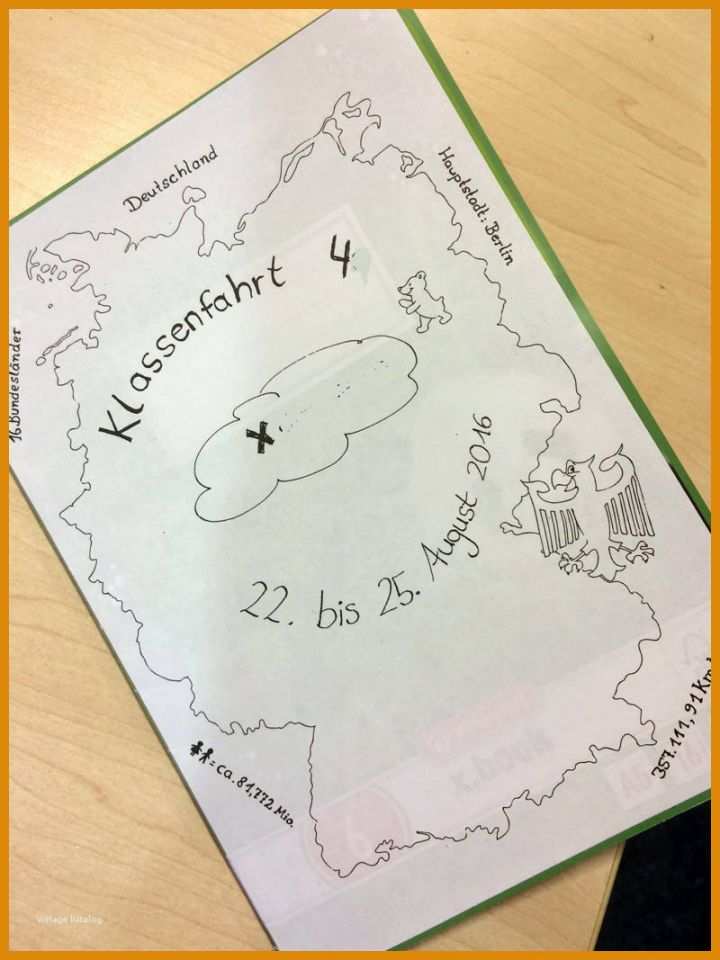 Deutschland
Hauptstadt: Berlin
16 Bundesländer
Klassenfahrt 4
x
22. bis 25. August 2016
= ca. 81,772 Mio.
357.111, 91 Km
vintage katalog